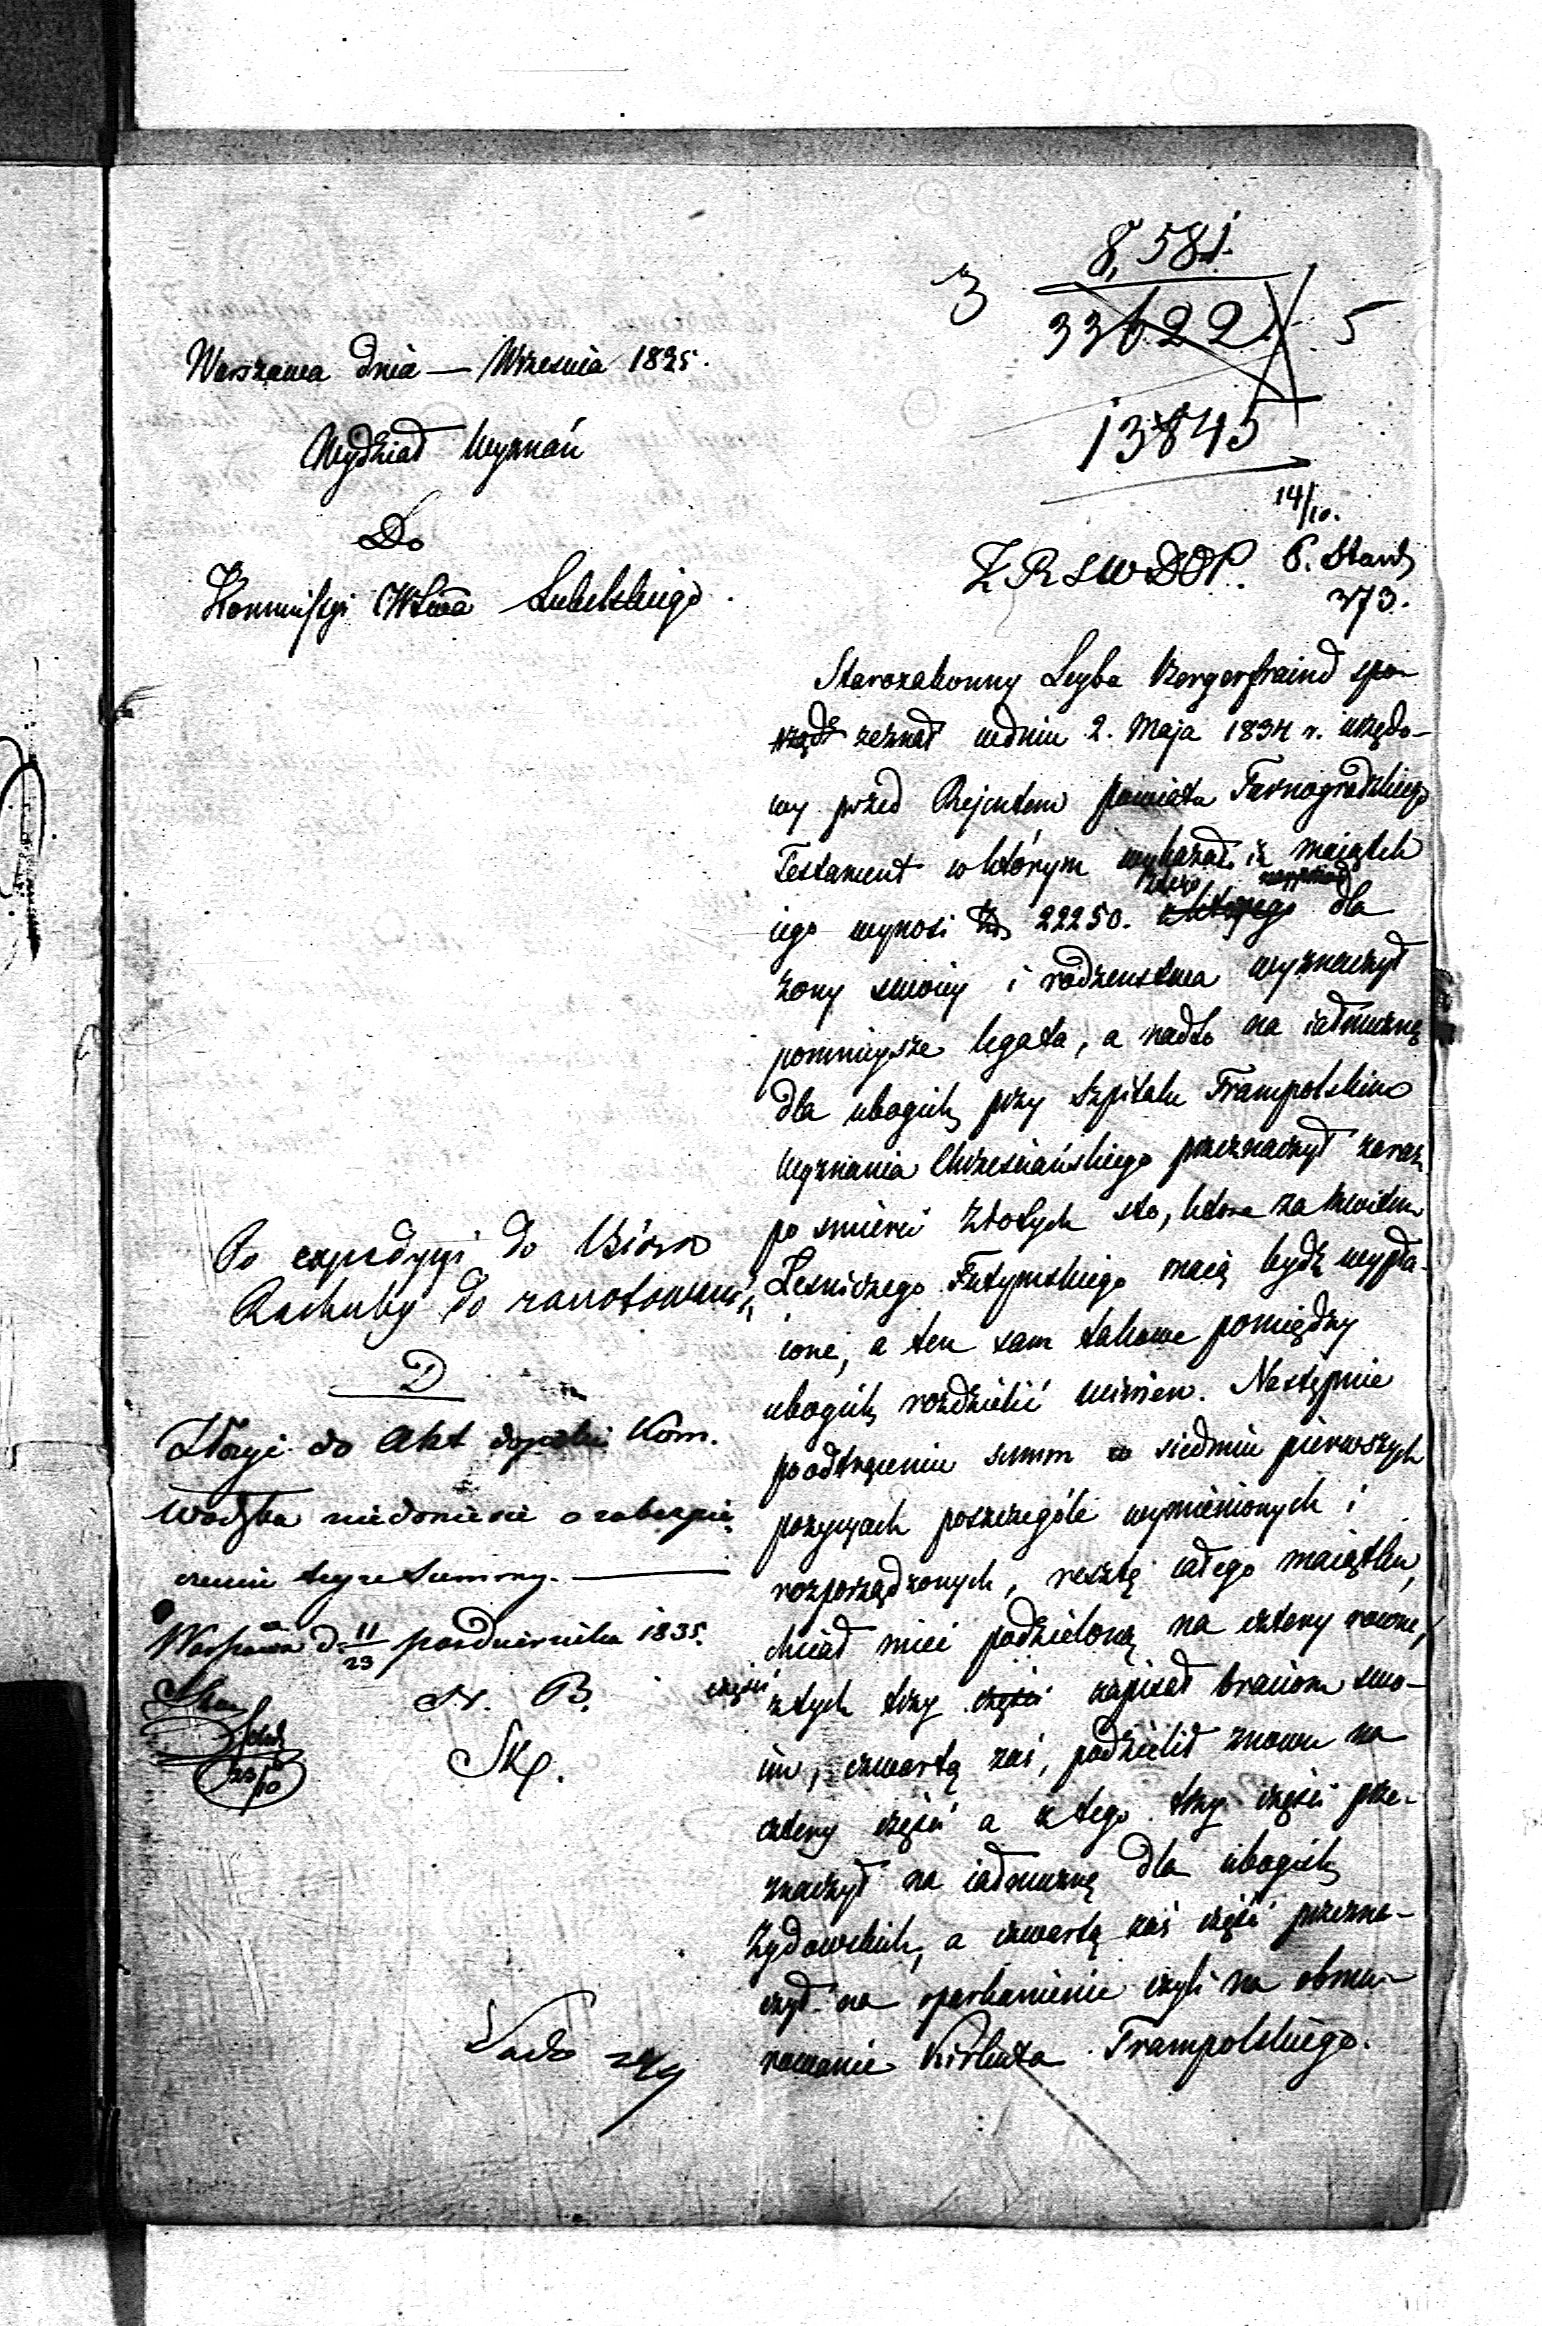 8,581.
3 33622 5
13845
14/10.
Warszawa dnia — Września 1835.
Wydział Wyznań
Do
Kommissyi Wdwa Lubelskiego.
Z RSWDOP. 6. Stard
373.
Starozakonny Leyba Bergerfraind spo-
rządz zeznał wdniu 2. Maja 1834 r. urzędo-
wy przed Rejentem powiatu Tarnogrodzkiego
Testament w którym wykazał, iż maiątek
iego wynosi Zł 22250. z którego dla
żony swoiey i rodzeństwa wyznaczył
pomnieysze legata, a nadto na iałmużnę
dla ubogich przy Szpitalu Frampolskim
Wyznania Chrześciańskiego przeznaczył zaraz
po smierci Złotych sto, które za kwitem
Leśniczego Futymskiego maią bydź wypła-
cone, a ten sam takowe pomiędzy
ubogich rozdzielić winien. Następnie
po odtrąceniu summ w siedmiu pierwszych
pozycyach poszczególe wymienionych i
rozporządzonych, resztę całego maiątku,
chciał mieć podzieloną na cztery rowne,
części
z tych trzy części zapisał braciom swo-
im, czwartą zaś, podzielił znowu na
cztery części a z tego trzy części prze-
znaczył na iałmużnę dla ubogich
Żydowskich, a czwartą zaś część przezna-
czył na oparkanienie czyli na obmu-
rowanie Kirkuta Frampolskiego.
Po expedycyi do Biura
Rachuby do zanotowania
D
Złożyć do Akt dopóki Kom.
Wodzka niedoniesie o zabezpie
czeniu teyze Summy. —
Warszawa d. 11/23 pazdziernika 1835.
N. B.
Skp.
23/10